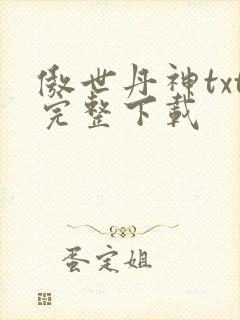 傲世丹神txt
完整下载
蛋定姐